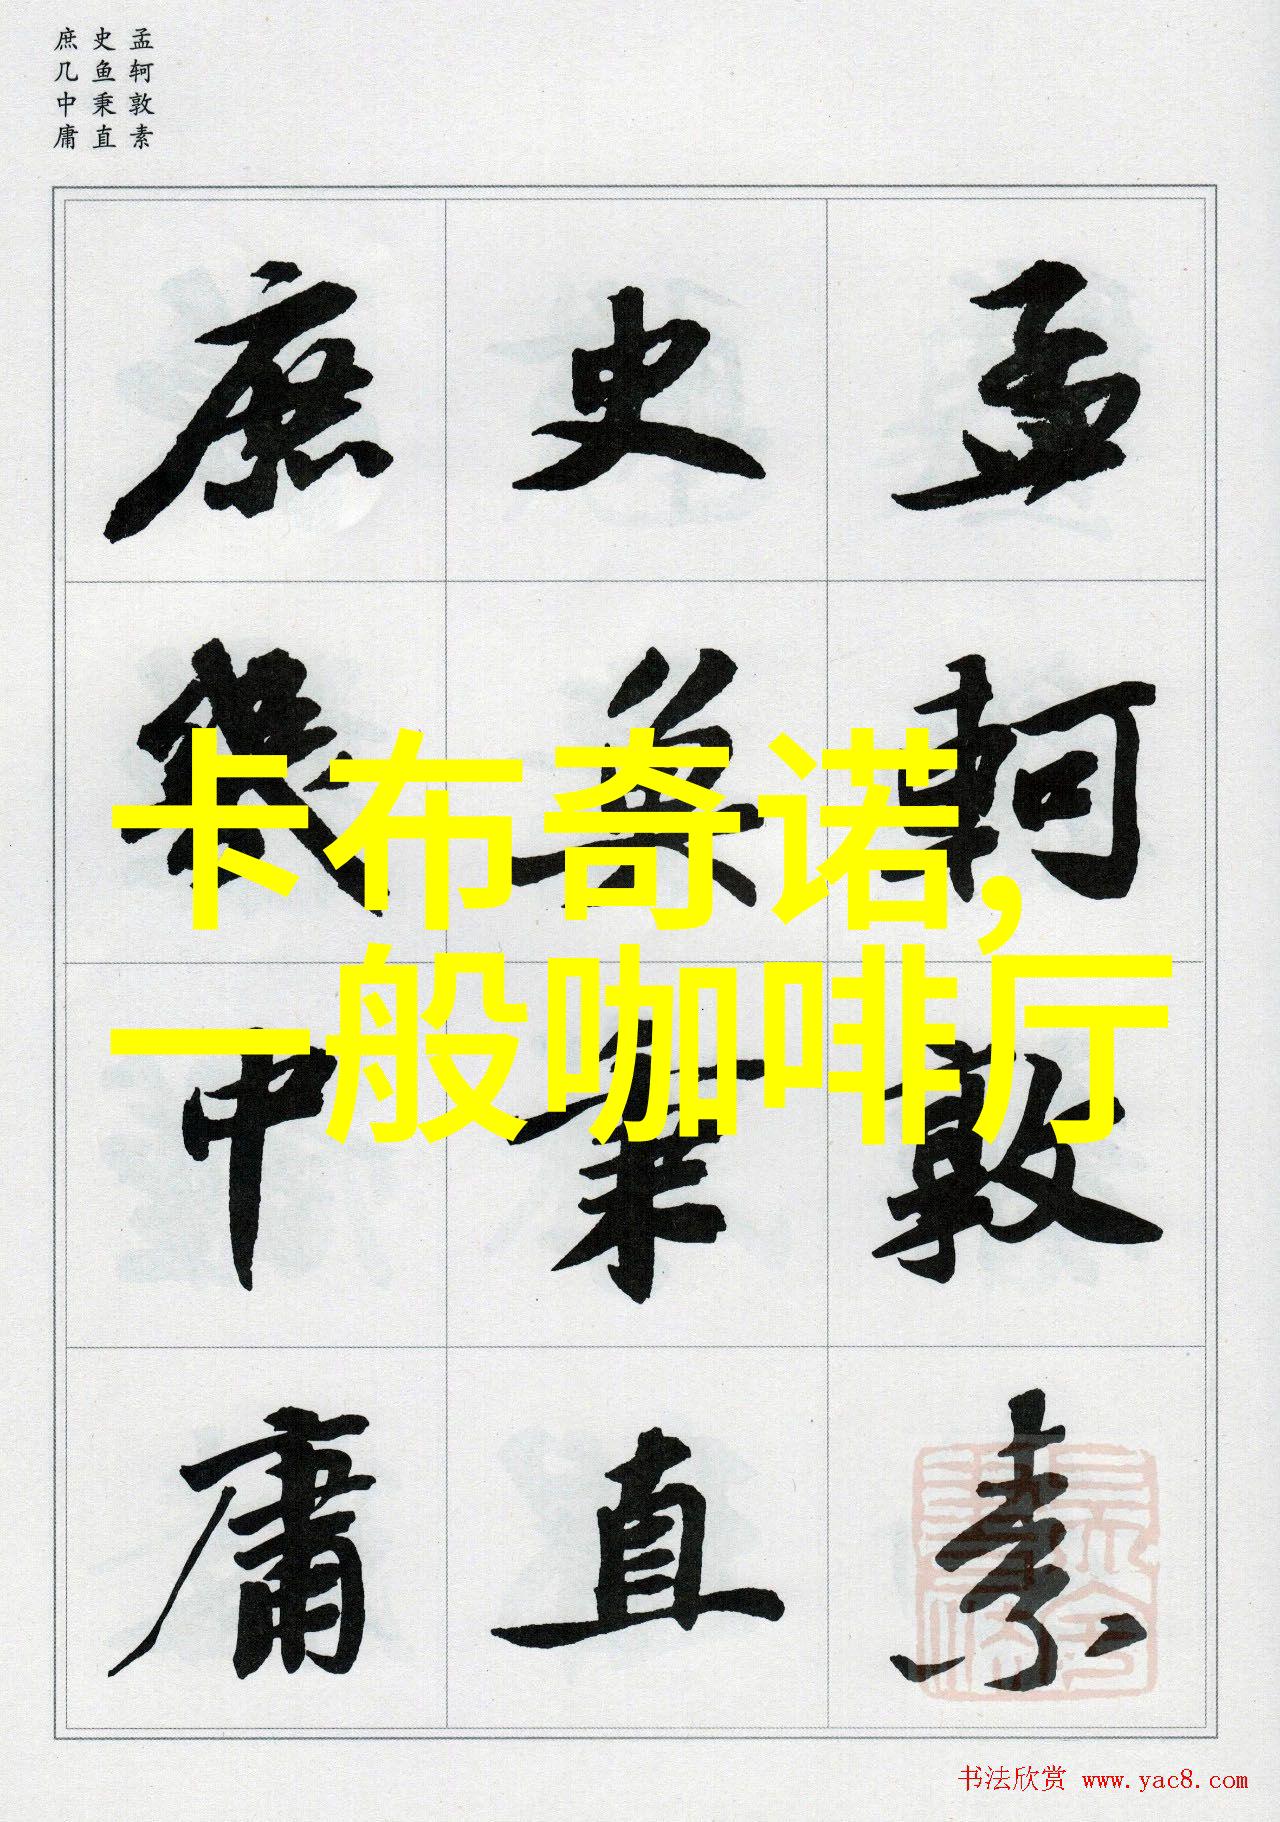 孟轲敦素
史鱼秉直
庶几中庸
孟軻敦素
史魚秉直
庶幾中庸
卡布奇诺,
一般咖啡厅
书法欣赏 www.yac8.com